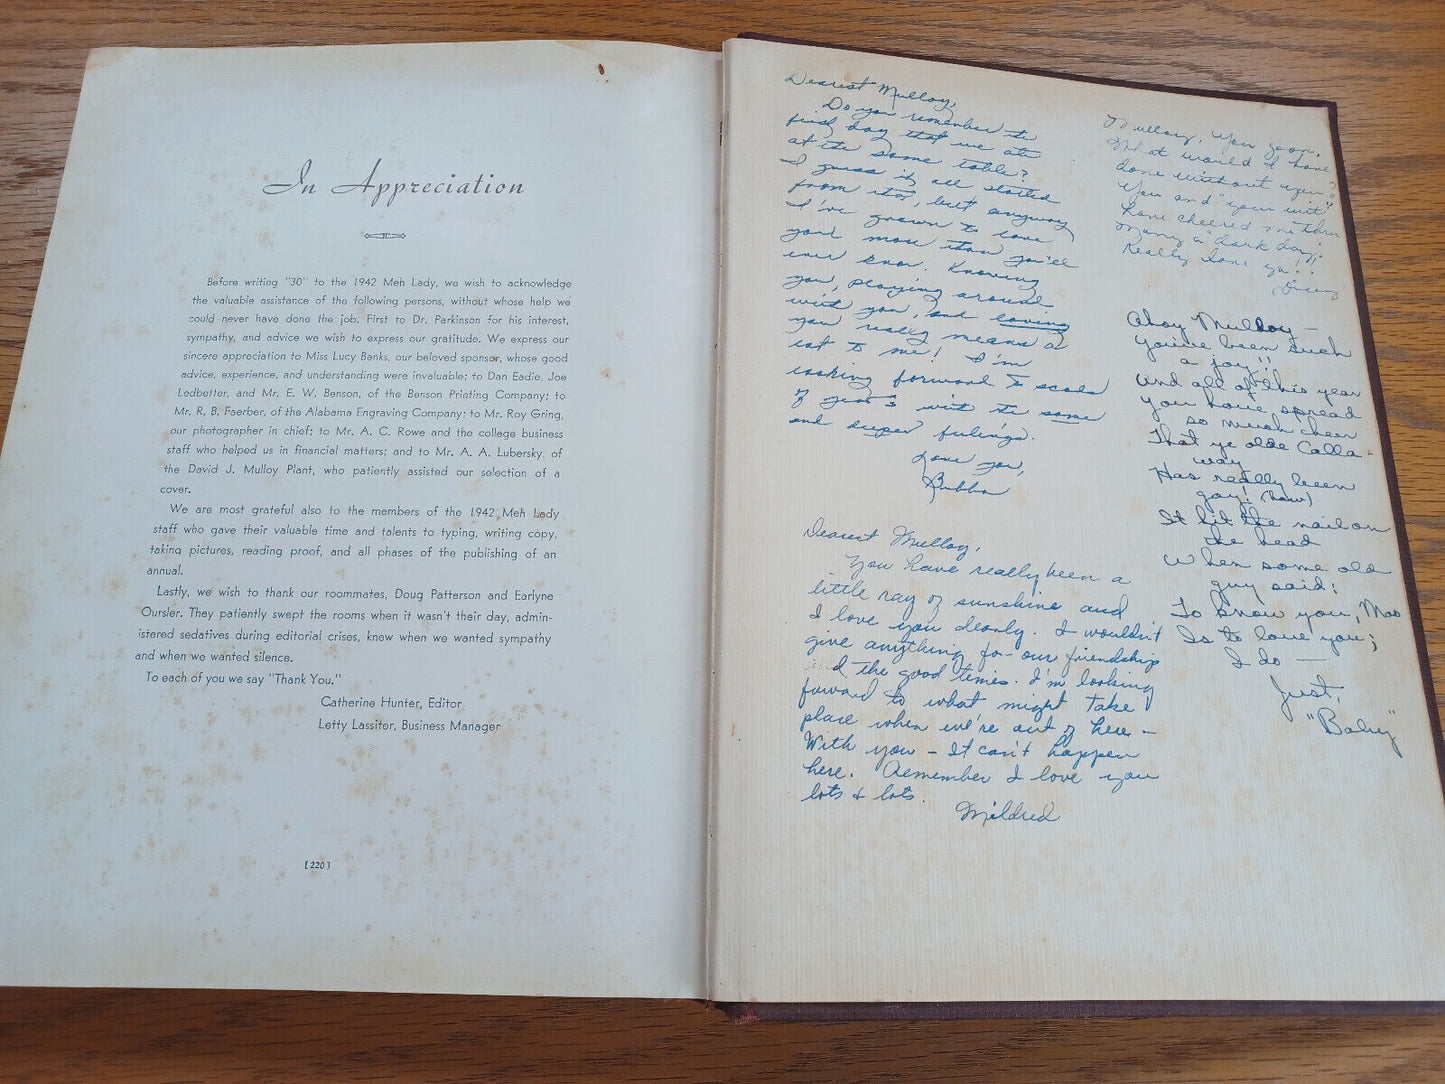 In Appreciation
Before writing "30" to the 1942 Meh Lady, we wish to acknowledge
the valuable assistance of the following persons, without whose help we
could never have done the job. First to Dr. Parkinson for his interest,
sympathy, and advice we wish to express our gratitude. We express our
sincere appreciation to Miss Lucy Banks, our beloved sponsor, whose good
advice, experience, and understanding were invaluable; to Dan Eadie, Joe
Ledbetter, and Mr. E. W. Benson, of the Benson Printing Company; to
Mr. R. B. Faerber, of the Alabama Engraving Company; to Mr. Roy Gring,
our photographer in chief; to Mr. A. C. Rowe and the college business
staff who helped us in financial matters; and to Mr. A. A. Lubersky, of
the David J. Mulloy Plant, who patiently assisted our selection of a
cover.
We are most grateful also to the members of the 1942 Meh Lady
staff who gave their valuable time and talents to typing, writing copy,
taking pictures, reading proof, and all phases of the publishing of an
annual.
Lastly, we wish to thank our roommates, Doug Patterson and Earlyne
Oursler. They patiently swept the rooms when it wasn't their day, admin-
istered sedatives during editorial crises, knew when we wanted sympathy
and when we wanted silence.
To each of you we say "Thank You."
Catherine Hunter, Editor
Letty Lassiter, Business Manager
[ 220 ]
Dearest Mulloy,
Do you remember the
first day that we ate
at the same table?
I guess it all started
from that, but anyway
I've grown to love
you more than you'll
ever know. Knowing
you, playing around
with you, and loving
you really means a
lot to me! I'm
looking forward to
of with the same
and deeper feelings.
Love you,
Bubba
Dearest Mulloy,
You have really been a
little ray of sunshine and
I love you dearly. I wouldn't
give anything for our friendship
and the good times. I'm looking
forward to what might take
place when we're out of here -
With you - It can't happen
here. Remember I love you
lots & lots.
Mildred
Mulloy, you goon,
What would I have
done without you?
You and "your wit"
have cheered me thru
many a "dark day."
Really love ya!!
Ahoy Mulloy -
You've been such
a joy!!
And all of this year
You have spread
so much cheer
That ye olde Calla-
way
Has really been
gay! (haw)
It hit the nail on
the head
When some old
guy said:
To know you, Moo
Is to love you;
I do -
Just,
"Baby"